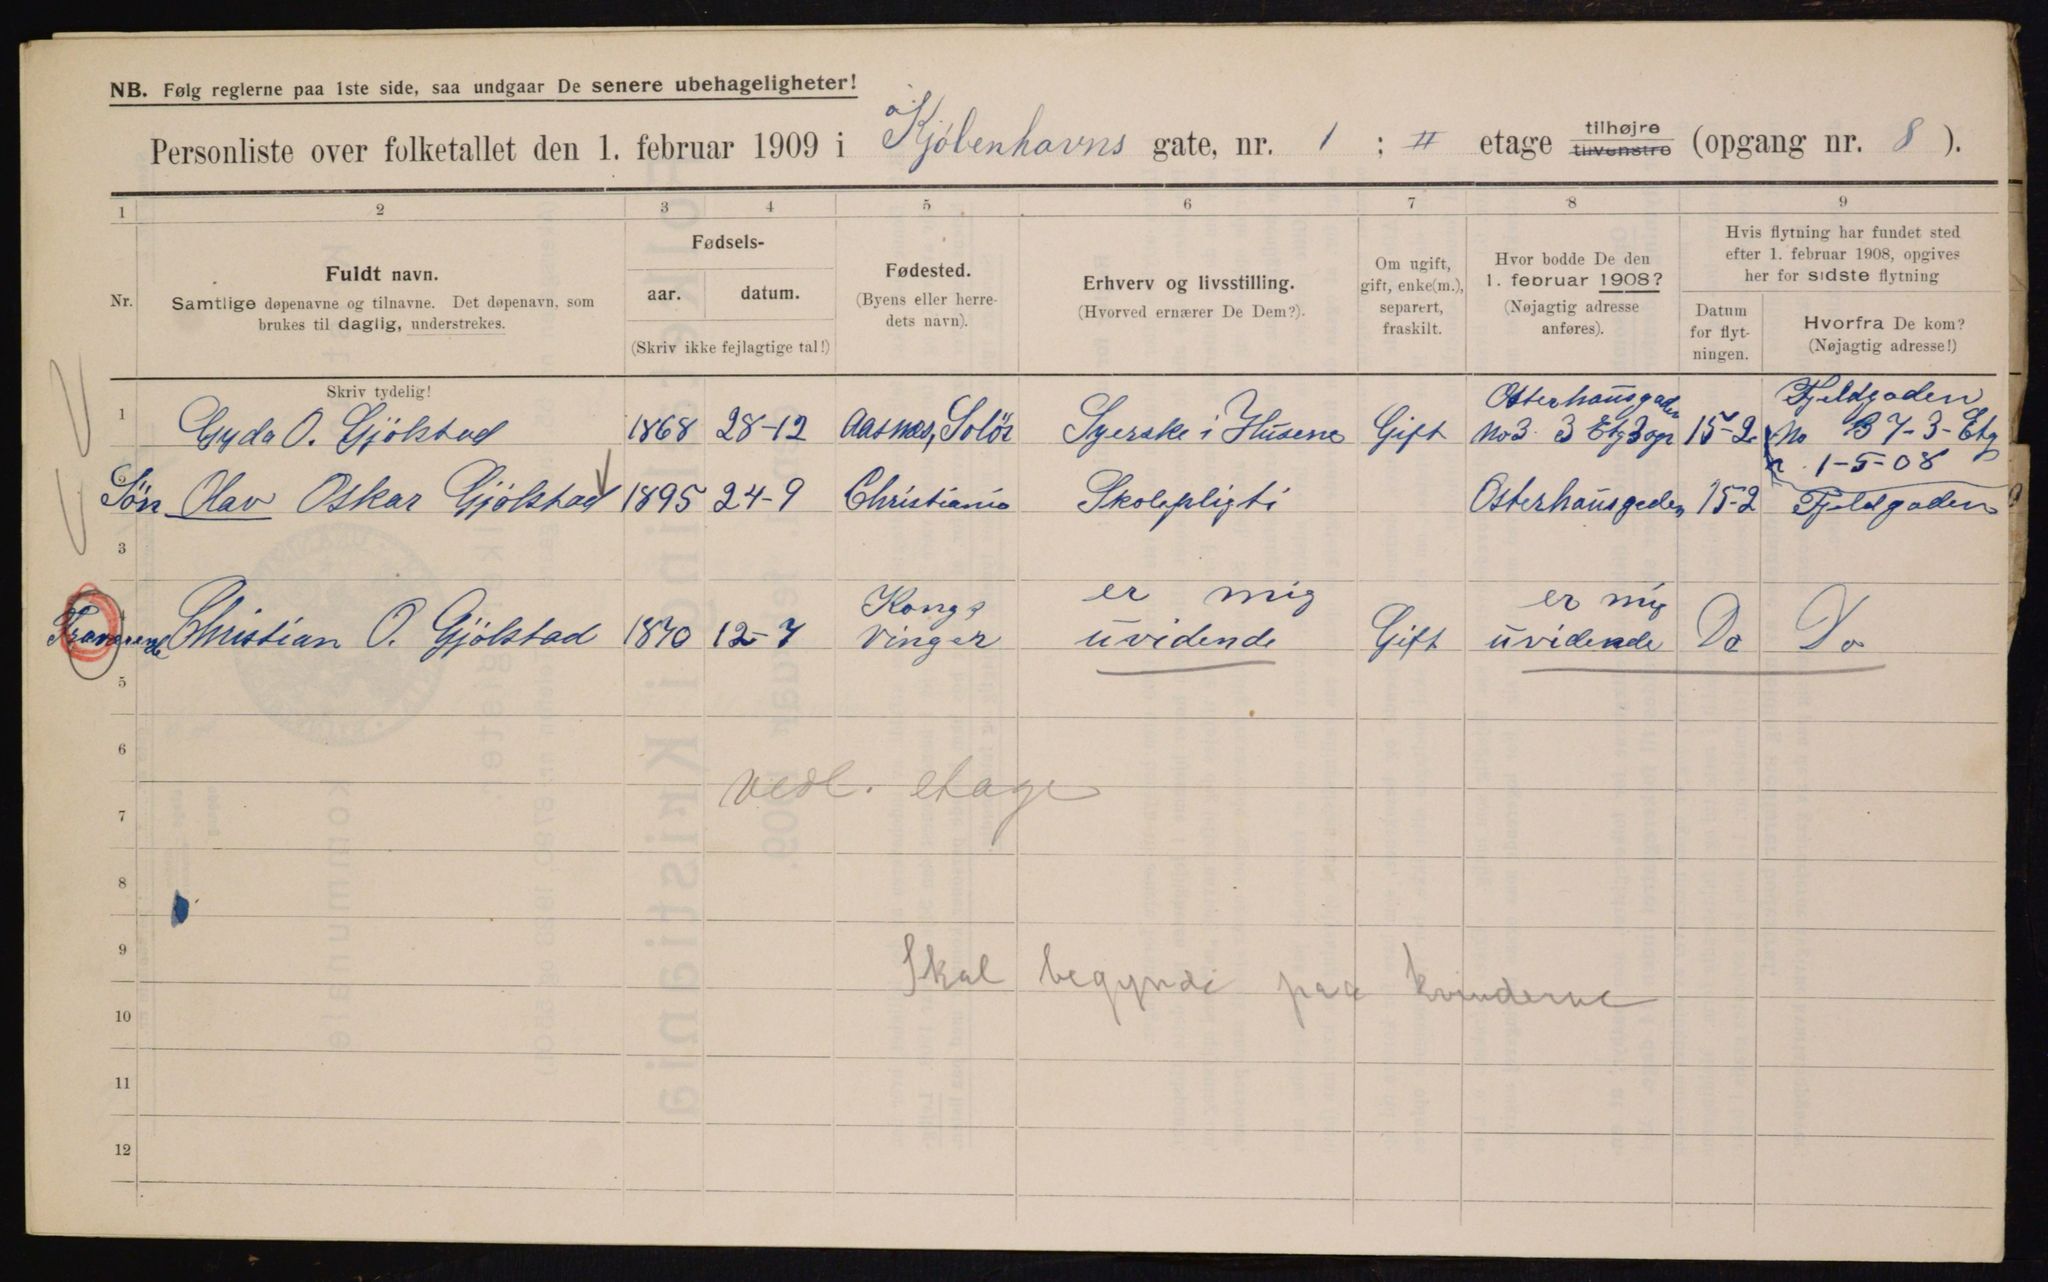 NB. Følg reglerne paa 1ste side, saa undgaar De senere ubehageligheter!
Personliste over folketallet den 1. februar 1909 i Kjöbenhavns gate, nr. 1 ; II etage tilhøjre tilvenstre (opgang nr. 8 ).
1 2 3 4 5 6 7 8 9
Nr.
Fuldt navn.
Samtlige døpenavne og tilnavne. Det døpenavn, som
brukes til daglig, understrekes.
Fødsels-
aar. datum.
(Skriv ikke fejlagtige tal!)
Fødested.
(Byens eller herre-
dets navn).
Erhverv og livsstilling.
(Hvorved ernærer De Dem?).
Om ugift,
gift, enke(m.),
separert,
fraskilt.
Hvor bodde De den
1. februar 1908?
(Nøjagtig adresse
anføres).
Hvis flytning har fundet sted
efter 1. februar 1908, opgives
her for sidste flytning
Datum
for flyt-
ningen.
Hvorfra De kom?
(Nøjagtig adresse!)
Skriv tydelig!
1 Gyda O. Gjölstad 1868 28-12 Aasnes, Solör Syerske i Husene Gift Osterhausgaden No 3. 3 Etg 3 opg 15-2 Fjeldgaden No 37-3-Etg
1-5-08
Sön Olav Oskar Gjölstad 1895 24-9 Christiania Skolepligti Osterhausgaden 15-2 Fjeldgaden
3
4 Fraværende Christian O. Gjölstad 1870 12-7 Kongsvinger er mig uvidende Gift er mig uvidende Do Do
5
6
vedl. etage
7
8
9
Skal begynde paa kvinderne
10
11
12